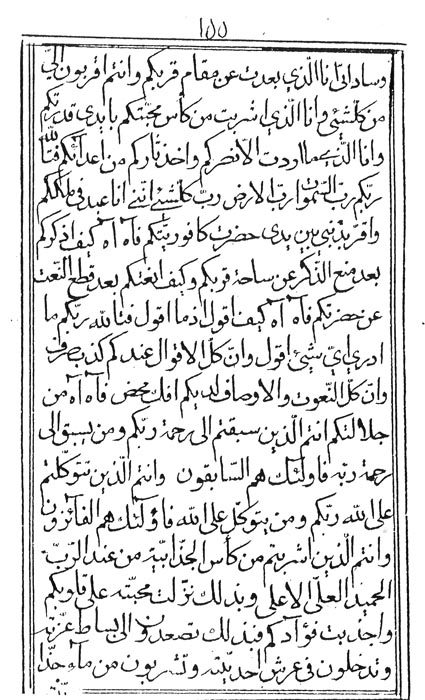 ١٥٥
وساداتى انا الّذى بعدت عن مقام قربكم وانتم اقربون الىّ
من كلّشئ وانا الّذى اشربت من كأس محبّتكم بايدى قدرتكم
وانا الّذى ما اردت الّا نصركم واخذ ثاركم من اعدائكم فتالله
ربّكم ربّ السّموات وربّ الارض ربّ كلّشئ انّنى انا عبد فى ملككم
وافقر مذنبى بين يدى حضرت كافوريّتكم فآه آه كيف اذكركم
بعد منع الذّكر عن ساحة قربكم وكيف انعتكم بعد قطع النّعت
عن حضرتكم فآه آه كيف اقول اذ ما اقول فتالله ربّكم ما
ادرى اىّ شيئ اقول وانّ كلّ الاقوال عندكم كذب صرف
وانّ كلّ النّعوت والاوصاف لديكم افك محض فآه آه من
جلالتكم انتم الّذين سبقتم الى رحمة ربّكم ومن يسبق الى
رحمة ربّه فاولئك هم السّابقون وانتم الّذين تتوكّلتم
على الله ربّكم ومن يتوكّل على الله فاولئك هم الفائزون
وانتم الّذين اشربتم من كأس الجذّابيّة من عند الرّبّ
الحميد العلىّ الاعلى وبذلك نزّلت محبّته على قلوبكم
واجذبت فؤادكم فبذلك تصعدون الى بساط عزّته
وتدخلون فى عرش احديّته وتشربون من ماء